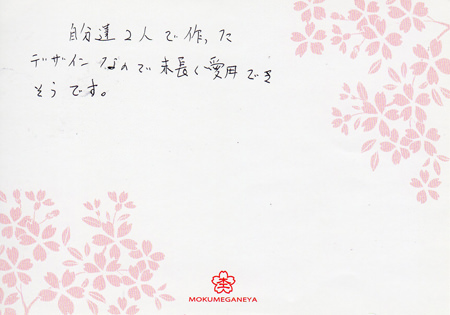 自分達2人で作った
デザインなので末長く愛用でき
そうです。
MOKUMEGANEYA